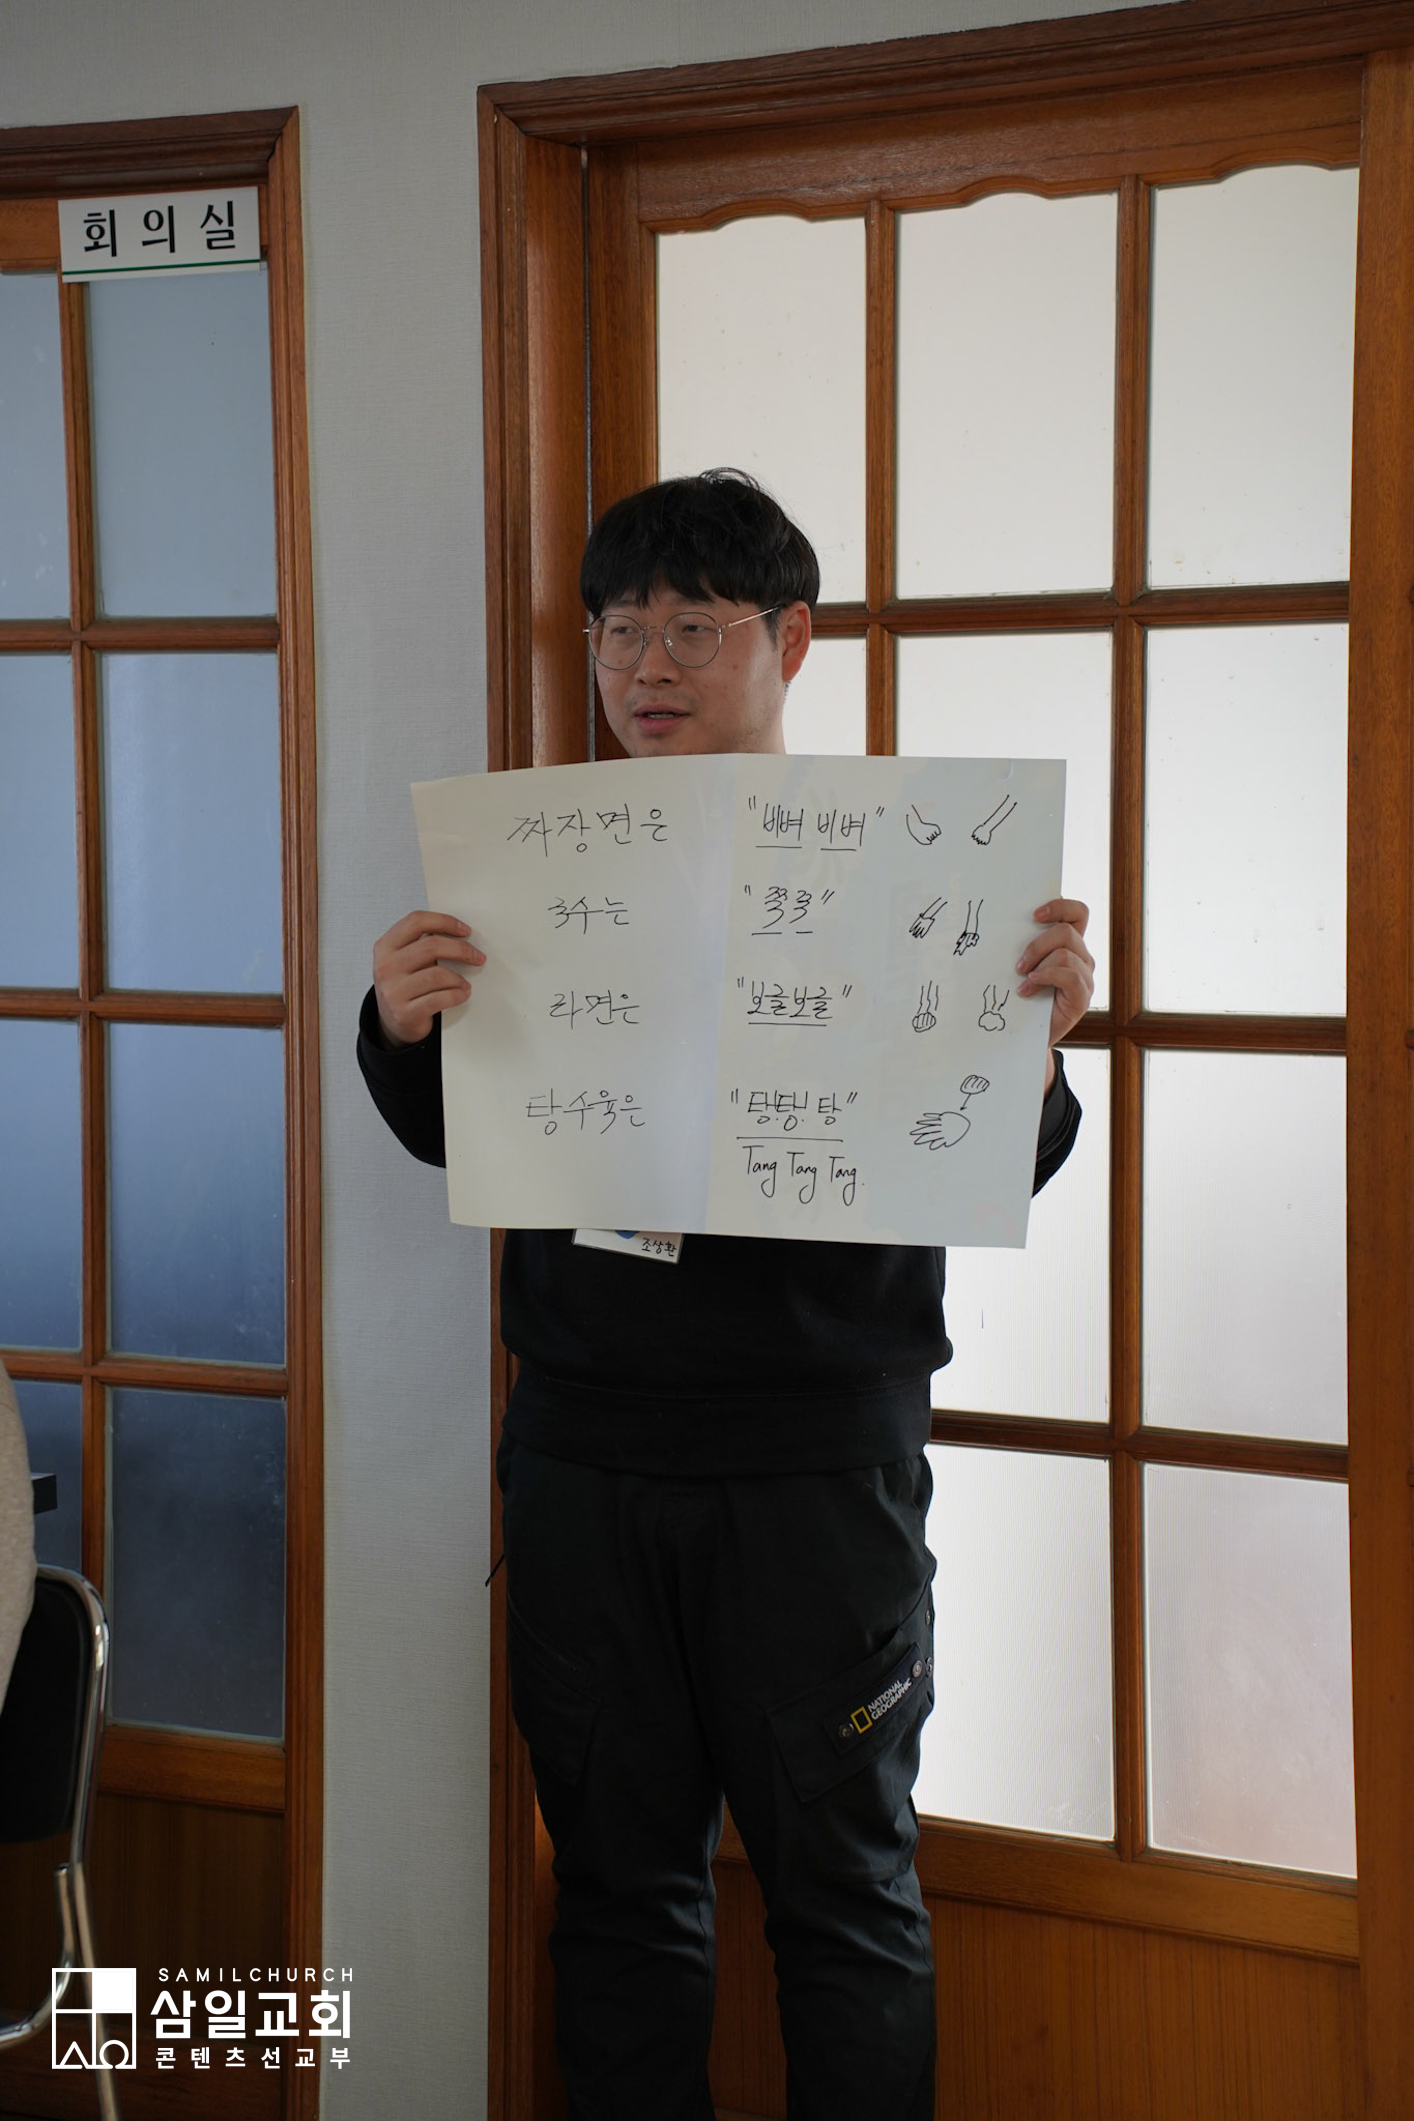 회의실
짜장면은 "비벼 비벼"
국수는 "쭉쭉"
라면은 "보글보글"
탕수육은 "탕!탕! 탕"
Tang Tang Tang.
조상환
NATIONAL
GEOGRAPHIC
SAMILCHURCH
삼일교회
콘텐츠선교부